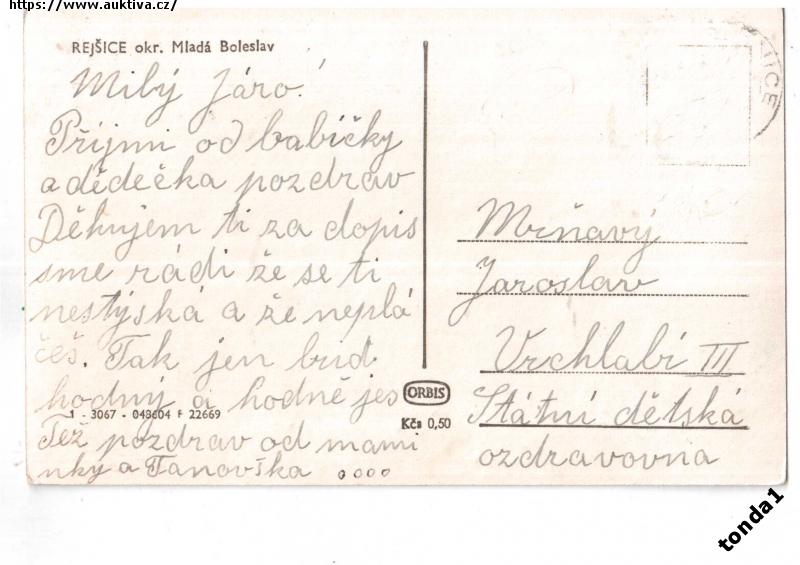 https://www.auktiva.cz/
REJŠICE okr. Mladá Boleslav
Milý Járo!
Přijmi od babičky
a dědečka pozdrav
Děkujem ti za dopis
sme rádi že se ti
nestýská a že neplá
češ. Tak jen buď
hodný a hodně jes
1 - 3067 - 048604 F 22669
Též pozdrav od mami
nky a Tanovška
ORBIS
Kčs 0,50
NICE
Mrňavý
Jaroslav
Vrchlabí III
Státní dětská
ozdravovna
tonda1